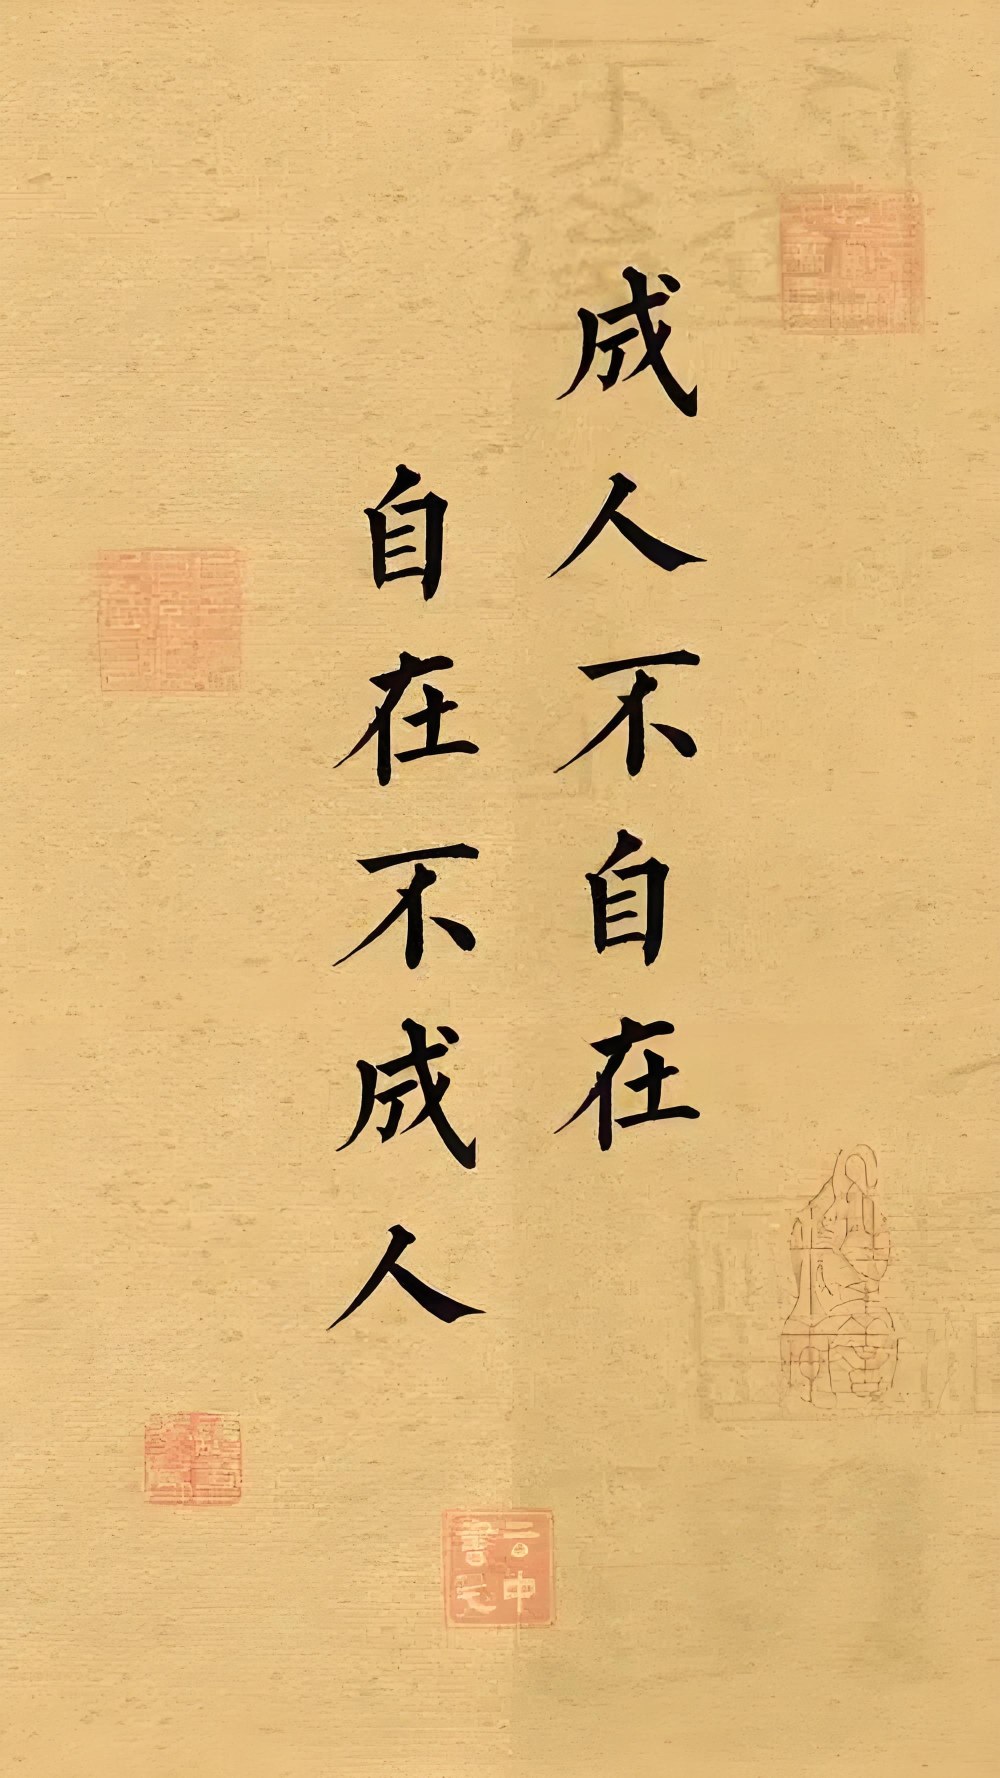 成人不自在
自在不成人